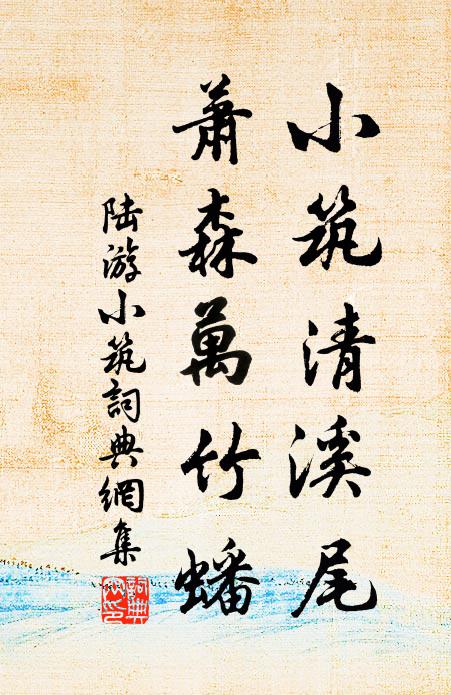 小筑清溪尾
萧森萬竹蟠
陆游小筑詞典網集